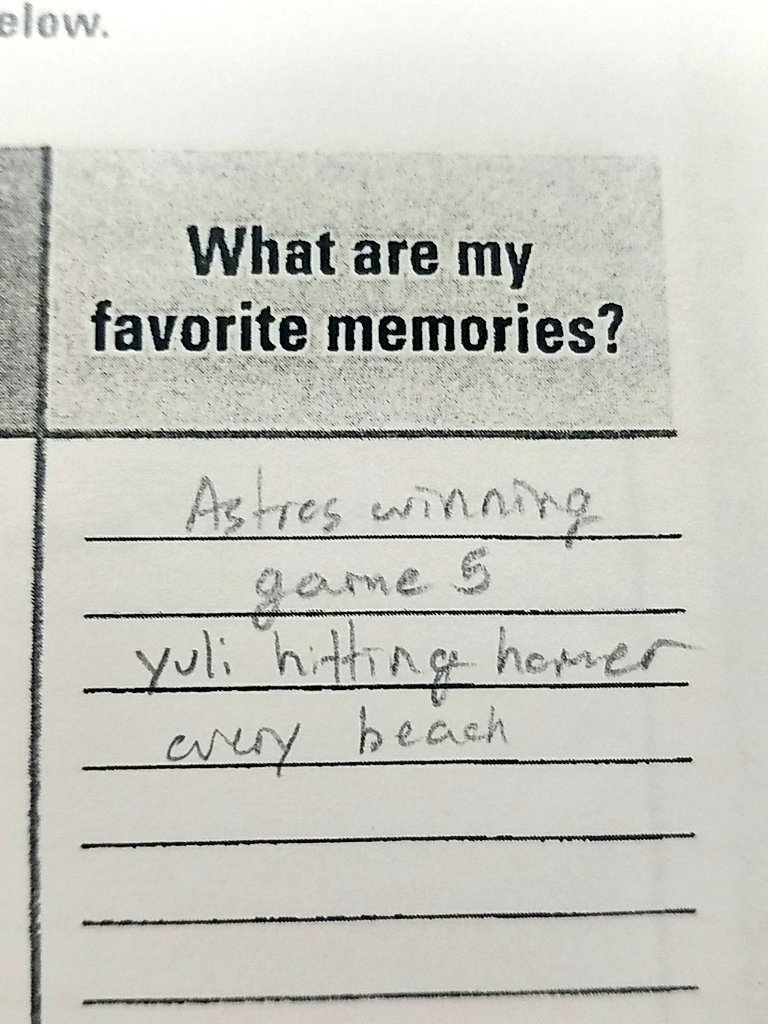 elow.
What are my
favorite memories?
Astros winning
game 5
yuli hitting homer
every beach